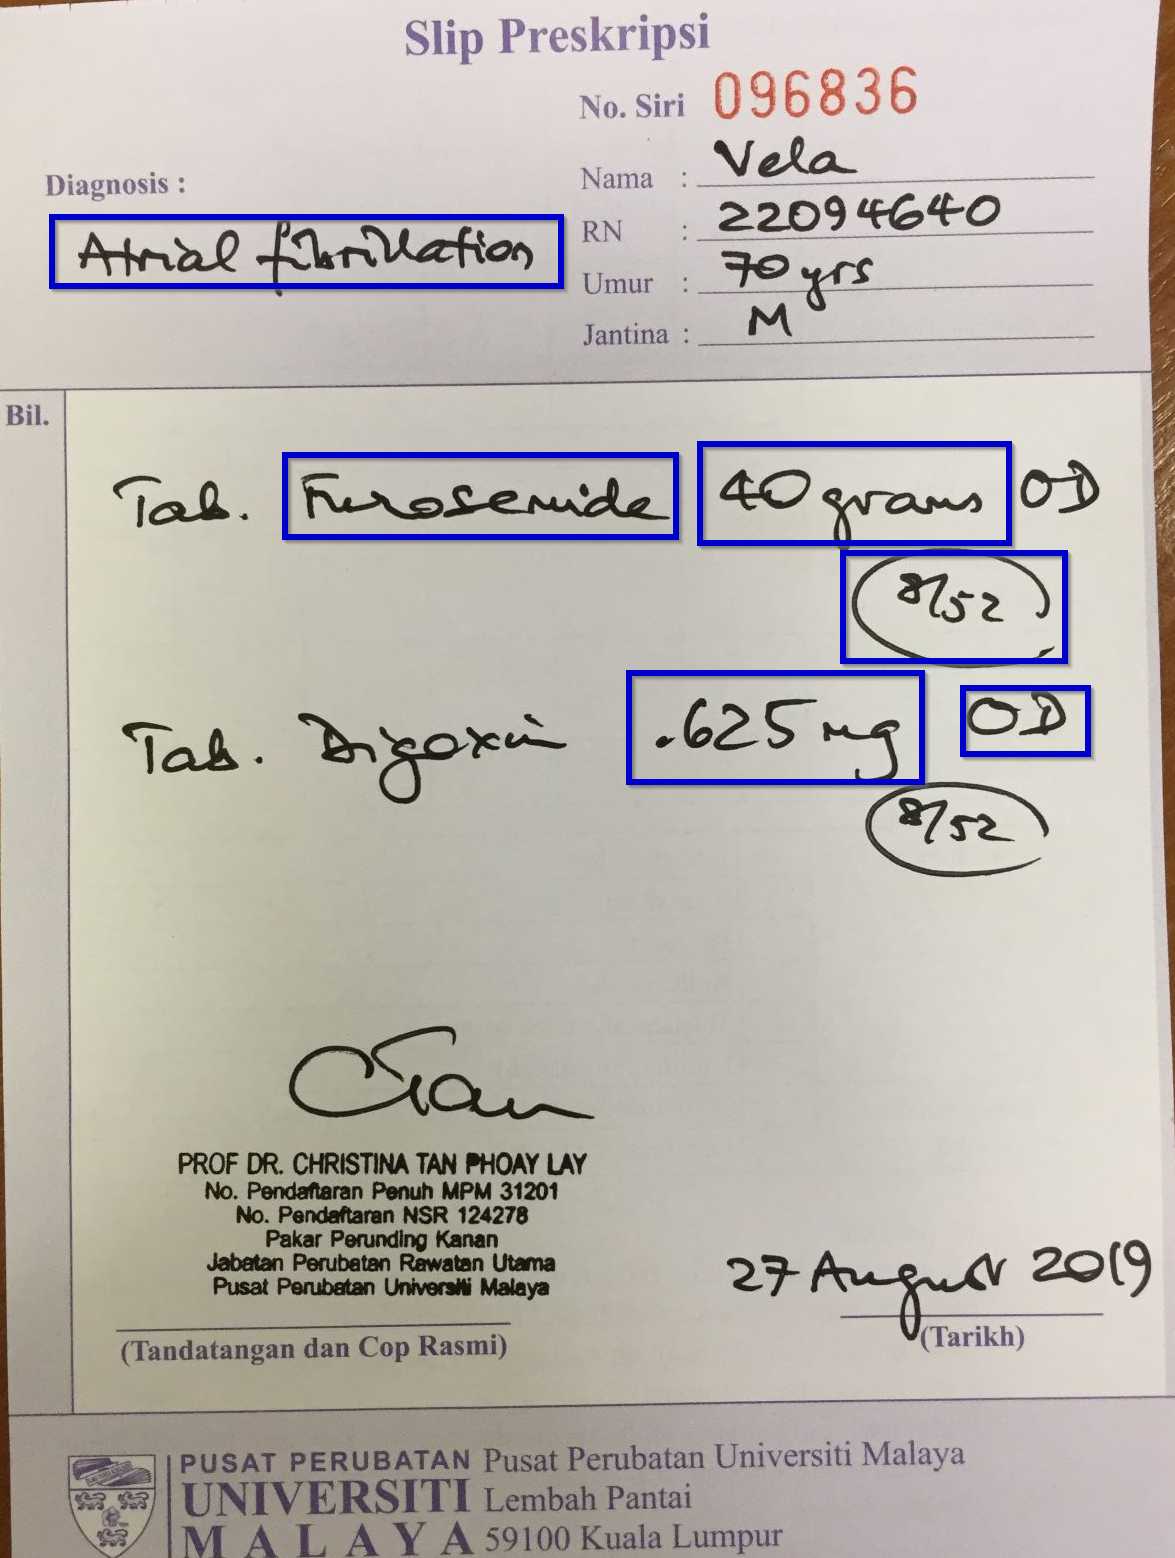 Slip Preskripsi
No. Siri 096836
Diagnosis :
Atrial fibrillation
Nama : Vela
RN : 22094640
Umur : 70 yrs
Jantina : M
Bil.
Tab. Furosemide 40 grams OD
8/52
Tab. Digoxin .625 mg OD
8/52
CTan
PROF DR. CHRISTINA TAN PHOAY LAY
No. Pendaftaran Penuh MPM 31201
No. Pendaftaran NSR 124278
Pakar Perunding Kanan
Jabatan Perubatan Rawatan Utama
Pusat Perubatan Universiti Malaya
27 August 2019
(Tandatangan dan Cop Rasmi)
(Tarikh)
PUSAT PERUBATAN
UNIVERSITI
MALAYA
Pusat Perubatan Universiti Malaya
Lembah Pantai
59100 Kuala Lumpur